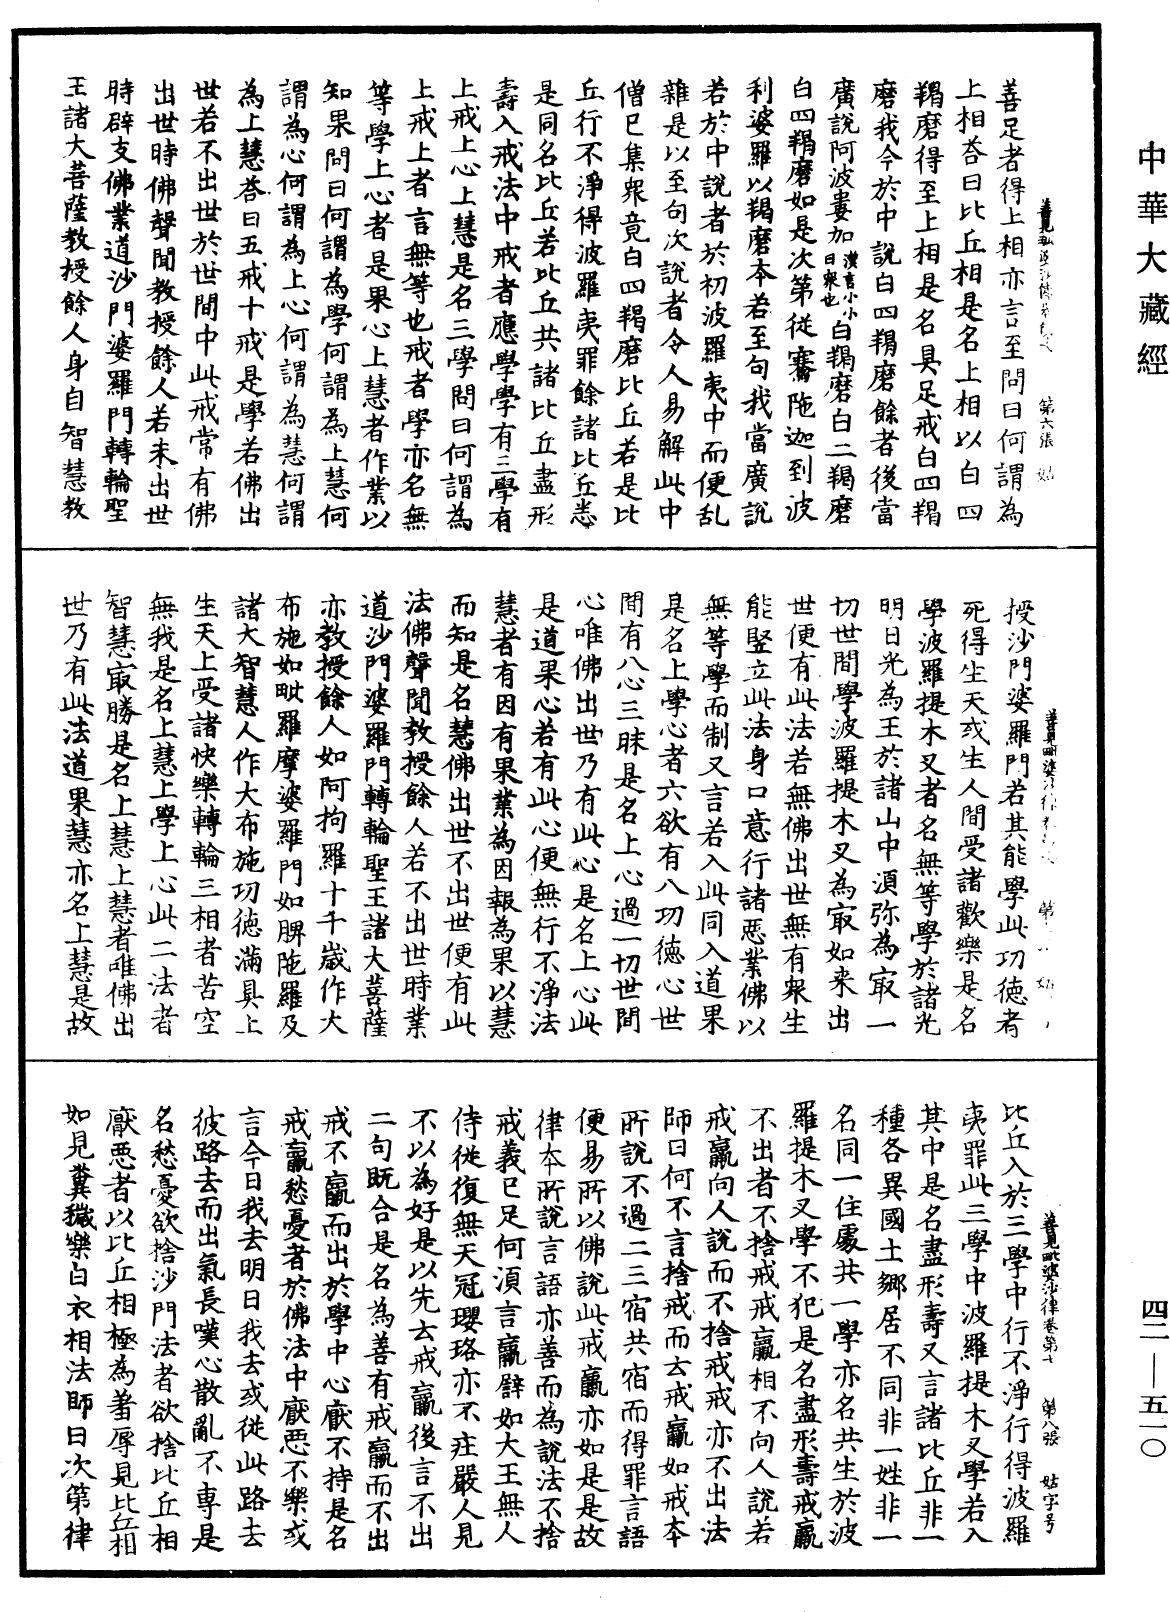 中華大藏經
善足者得上相亦言至問曰何謂為
上相荅曰比丘相是名上相以白四
羯磨得至上相是名具足戒白四羯
磨我今於中說白四羯磨餘者後當
廣說阿波婁加漢言小小曰衆也白羯磨白二羯磨
白四羯磨如是次第從騫陁迦到波
利婆羅以羯磨本若至句我當廣說
若於中說者於初波羅夷中而便乱
雜是以至句次說者令人易解此中
僧已集衆竟白四羯磨比丘若是比
丘行不淨得波羅夷罪餘諸比丘悉
是同名比丘若比丘共諸比丘盡形
壽入戒法中戒者應學學有三學有
上戒上心上慧是名三學問曰何謂為
上戒上者言無等也戒者學亦名無
等學上心者是果心上慧者作業以
知果問曰何謂為學何謂為上慧何
謂為心何謂為上心何謂為慧何謂
為上慧荅曰五戒十戒是學若佛出
世若不出世於世間中此戒常有佛
出世時佛聲聞教授餘人若未出世
時辟支佛業道沙門婆羅門轉輪聖
王諸大菩薩教授餘人身自智慧教
授沙門婆羅門若其能學此功德者
死得生天或生人間受諸歡樂是名
學波羅提木叉者名無等學於諸光
明日光為王於諸山中湏弥為㝡一
切世間學波羅提木叉為㝡如来出
世便有此法若無佛出世無有衆生
能竪立此法身口意行諸惡業佛以
無等學而制又言若入此同入道果
是名上學心者六欲有八功德心世
間有八心三昧是名上心過一切世間
心唯佛出世乃有此心是名上心此
是道果心若有此心便無行不淨法
慧者有因有果業為因報為果以慧
而知是名慧佛出世不出世便有此
法佛聲聞教授餘人若不出世時業
道沙門婆羅門轉輪聖王諸大菩薩
亦教授餘人如阿拘羅十千歲作大
布施如毗羅摩婆羅門如脾陁羅及
諸大智慧人作大布施功德滿具上
生天上受諸快樂轉輪三相者苦空
無我是名上慧上學上心此二法者
智慧㝡勝是名上慧上慧者唯佛出
世乃有此法道果慧亦名上慧是故
善見毗婆沙律卷第七　第八張　姑字号
比丘入於三學中行不淨行得波羅
夷罪此三學中波羅提木叉學若入
其中是名盡形壽又言諸比丘非一
種各異國土鄉居不同非一姓非一
名同一住處共一學亦名共生於波
羅提木叉學不犯是名盡形壽戒羸
不出者不捨戒戒羸相不向人說若
戒羸向人說而不捨戒戒亦不出法
師曰何不言捨戒而去戒羸如戒本
所說不過二三宿共宿而得罪言語
便易所以佛說此戒羸亦如是是故
律本所說言語亦善而為說法不捨
戒義已足何湏言羸譬如大王無人
侍從復無天冠瓔珞亦不莊嚴人見
不以為好是以先去戒羸後言不出
二句旣合是名為善有戒羸而不出
戒不羸而出於學中心厭不持是名
戒羸愁憂者於佛法中厭惡不樂或
言今日我去明日我去或從此路去
彼路去而出氣長嘆心散亂不專是
名愁憂欲捨沙門法者欲捨比丘相
厭惡者以比丘相極為羞辱見比丘相
如見糞穢樂白衣相法師曰次第律
四二—五一〇